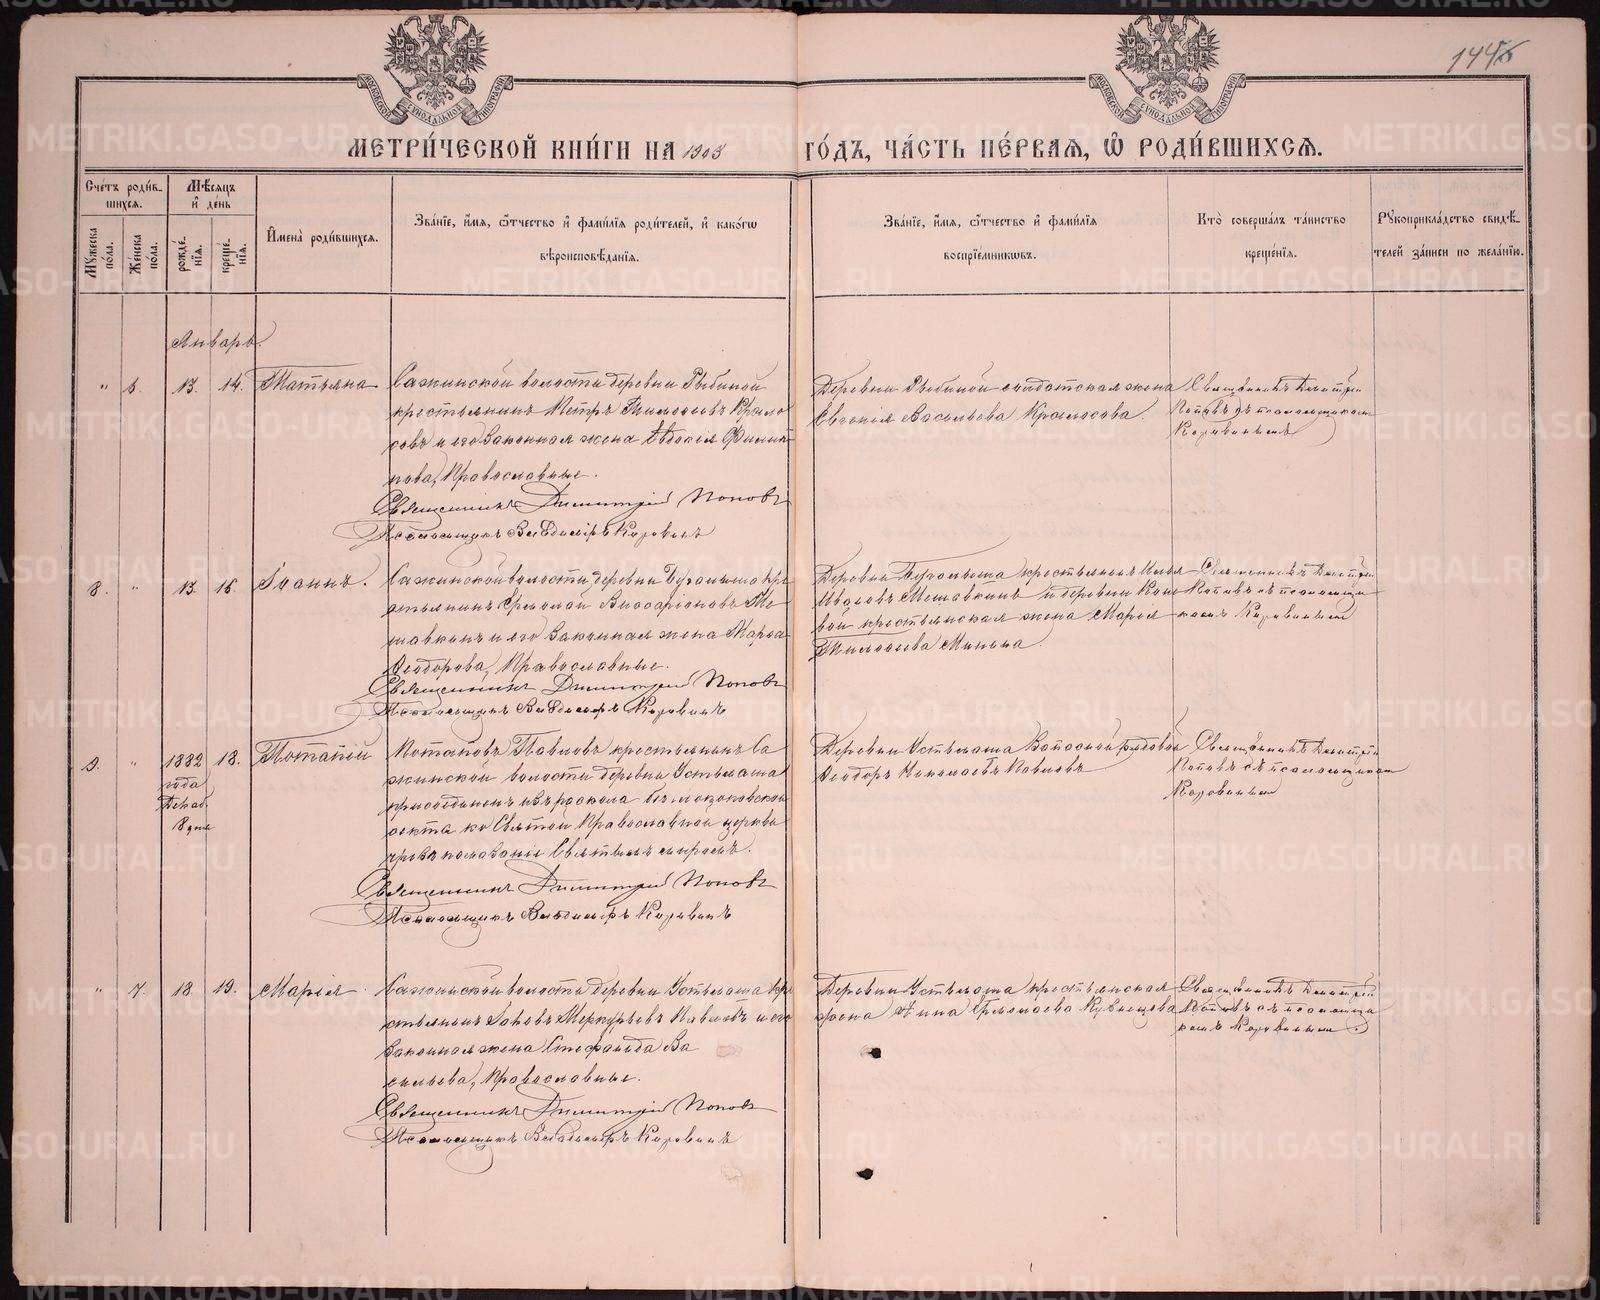 144
МЕТРИ́ЧЕСКОЙ КНИ́ГИ НА 1903 ГО́ДЪ, ЧА́СТЬ ПЕ́РВАЯ, Ѡ РОДИ́ВШИХСЯ.
Сче́тъ роди́в-
шихся.
Мѣ́сяцъ
и҆ де́нь
Му́жеска
по́ла.
Же́нска
по́ла.
рожде́-
нія.
креще́-
нія.
И҆мена̀ роди́вшихся.
Зва́ніе, и҆́мя, ѻ҆́тчество и҆ фами́лія роди́телей, и҆ како́гѡ
вѣроисповѣ́данія.
Зва́ніе, и҆́мя, ѻ҆́тчество и҆ фами́лія
воспріе́мникѡвъ.
Кто̀ соверша́лъ та́инство
креще́нія.
Рꙋкоприкла́дство свидѣ́-
телей за́писи по жела́нію.
Январь.
" 6. 13. 14. Татьяна
Сажинской волости деревни Рыбиной
крестьянинъ Петръ
и его законная жена Евдокія Филип
пова, Православные.
Священникъ Димитрій Поповъ
Псаломщикъ Владиміръ Коровинъ
Деревни Рыбиной солдатская жена
Евгенія Васильева
Священникъ Димитрій
Поповъ съ псаломщикомъ
Коровинымъ
8. " 13. 16. Іоаннъ.
Сажинской волости, деревни Бугалыша кре
стьянинъ Ермолай Виссаріоновъ Ме
шавкинъ и его законная жена Марѳа
Ѳеодорова, Православные.
Священникъ Димитрій Поповъ
Псаломщикъ Владиміръ Коровинъ
Деревни Бугалыша крестьянинъ Илья
Ивановъ Мешавкинъ и деревни
крестьянская жена Марія
Минина.
Священникъ Димитрій
Поповъ съ псаломщи
комъ Коровинымъ
9. " 1882 18. Потапій
года
Декаб.
8 дня
Потаповъ Павловъ крестьянинъ Са
жинской волости деревни Устьмаша
присоединенъ изъ раскола
секта ко Святой Православной церкви
чрезъ помазаніе Святымъ миромъ.
Священникъ Димитрій Поповъ
Псаломщикъ Владиміръ Коровинъ
Деревни Устьмаша запасной рядовой
Ѳеодоръ Николаевъ Павловъ
Священникъ Димитрій
Поповъ съ псаломщикомъ
Коровинымъ
" 7. 18. 19. Марія
Сажинской волости деревни Устьмаша кре
стьянинъ Іаковъ Меркурьевъ Павловъ и его
законная жена Стефанида Ва
сильева, Православные.
Священникъ Димитрій Поповъ
Псаломщикъ Владиміръ Коровинъ
Деревни Устьмаша крестьянская
жена Анна Кузнецова
Священникъ Димитрій
Поповъ съ псаломщи
комъ Коровинымъ.
METRIKI.GASO-URAL.RU